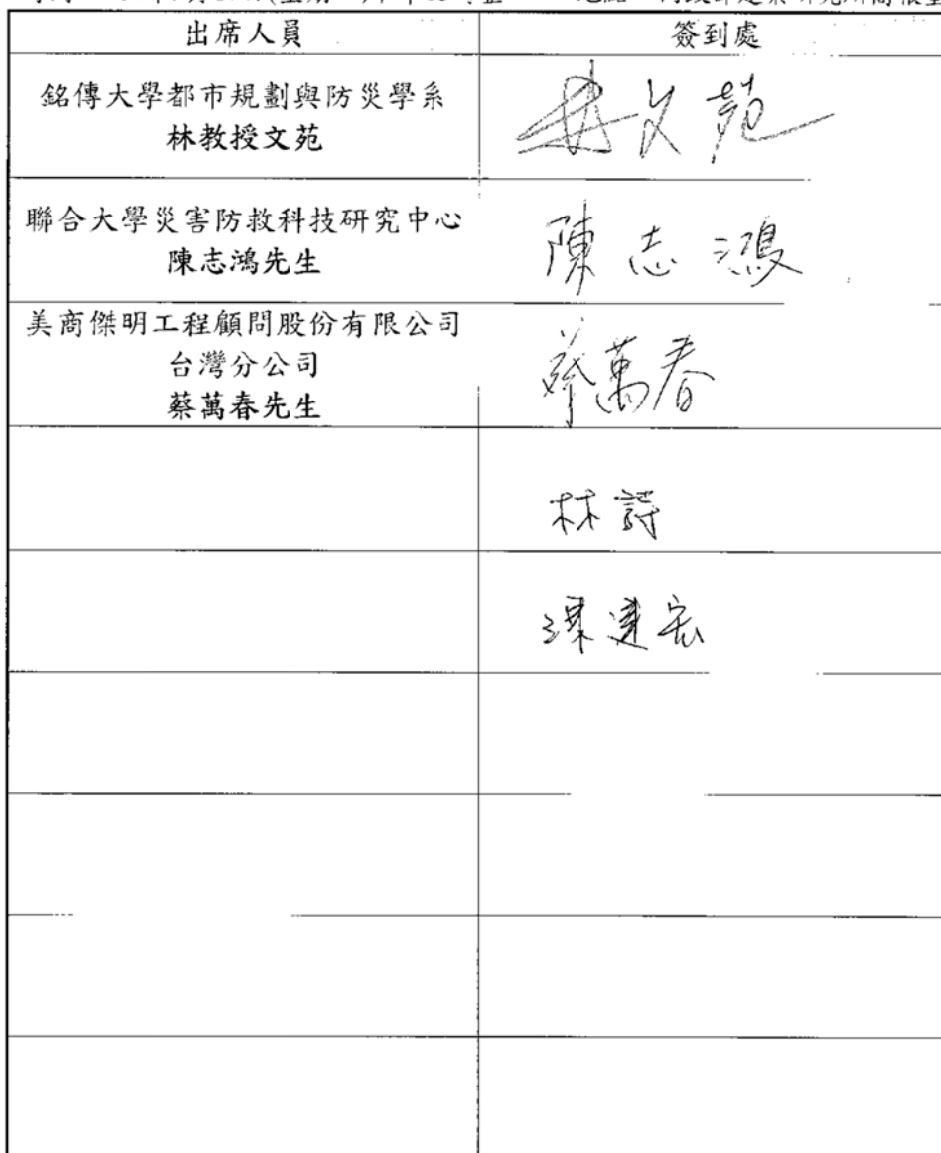 出席人員
簽到處
銘傳大學都市規劃與防災學系
林教授文苑
林文苑
聯合大學災害防救科技研究中心
陳志鴻先生
陳志鴻
美商傑明工程顧問股份有限公司
台灣分公司
蔡萬春先生
蔡萬春
林詩